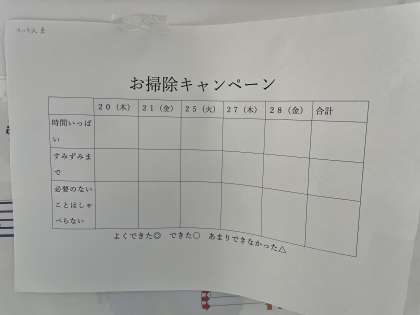 お掃除キャンペーン
20（木） 21（金） 25（火） 27（木） 28（金） 合計
時間いっぱ
い
すみずみま
で
必要のない
ことはしゃ
べらない
よくできた◎ できた○ あまりできなかった△